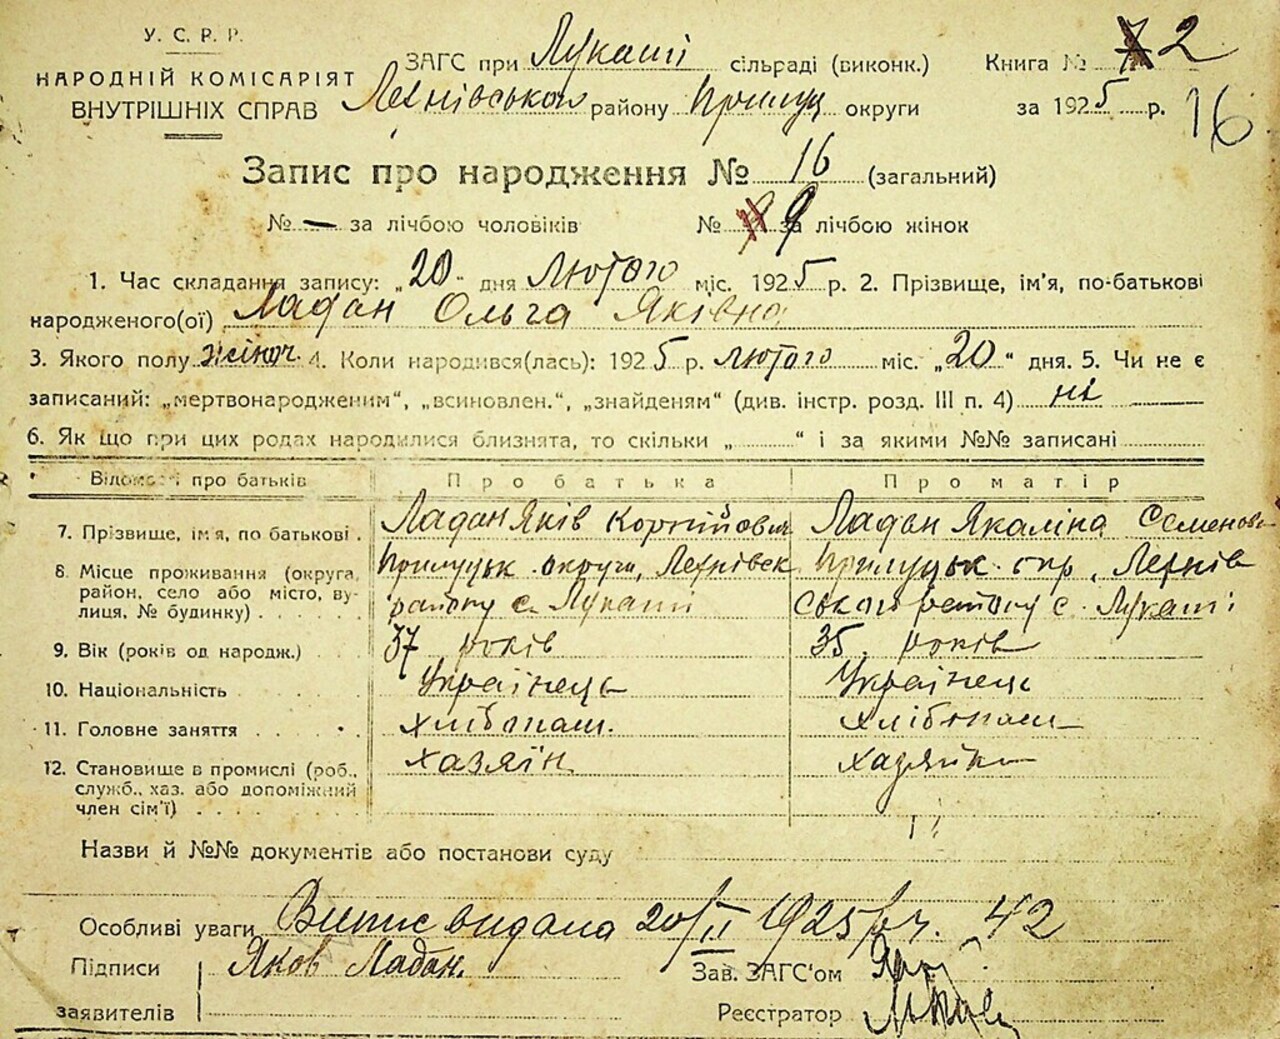 У. С. Р. Р.
НАРОДНІЙ КОМІСАРІЯТ
ВНУТРІШНІХ СПРАВ
ЗАГС при Лукаші сільраді (виконк.) Книга № 2
району Прилуц округи за 1925 р. 16
Запис про народження № 16 (загальний)
№ — за лічбою чоловіків № 9 за лічбою жінок
1. Час складання запису: „20" дня Лютого міс. 1925 р. 2. Прізвище, ім'я, по-батькові
народженого(ої) Ладан Ольга Яківна
3. Якого полу жіноч. 4. Коли народився(лась): 1925 р. лютого міс. „20" дня. 5. Чи не є
записаний: „мертвонародженим", „всиновлен.", „знайденям" (див. інстр. розд. III п. 4) ні
6. Як що при цих родах народилися близнята, то скільки „ " і за якими №№ записані
Відомості про батьків Про батька Про матір
7. Прізвище, ім'я, по батькові . Ладан Яків Корнійович Ладан Якиліна Семенов
8. Місце проживання (округа, Прилуцьк округи, Прилуцьк окр,
район, село або місто, ву- району с. Лукаші с. Лукаші
лиця, № будинку) . . . .
9. Вік (років од народж.) . . . 37 років 35 років
10. Національність . . . . Українець Українець
11. Головне заняття . . . . . хлібопаш. хлібопаш
12. Становище в промислі (роб., хазяїн хазяйка
служб., хаз. або допоміжний
член сім'ї) . . . . . . .
Назви й №№ документів або постанови суду
Особливі уваги Випис видана 20/II 1925 р. 42
Підписи Яков Ладан. Зав. ЗАГС'ом
заявителів Реєстратор